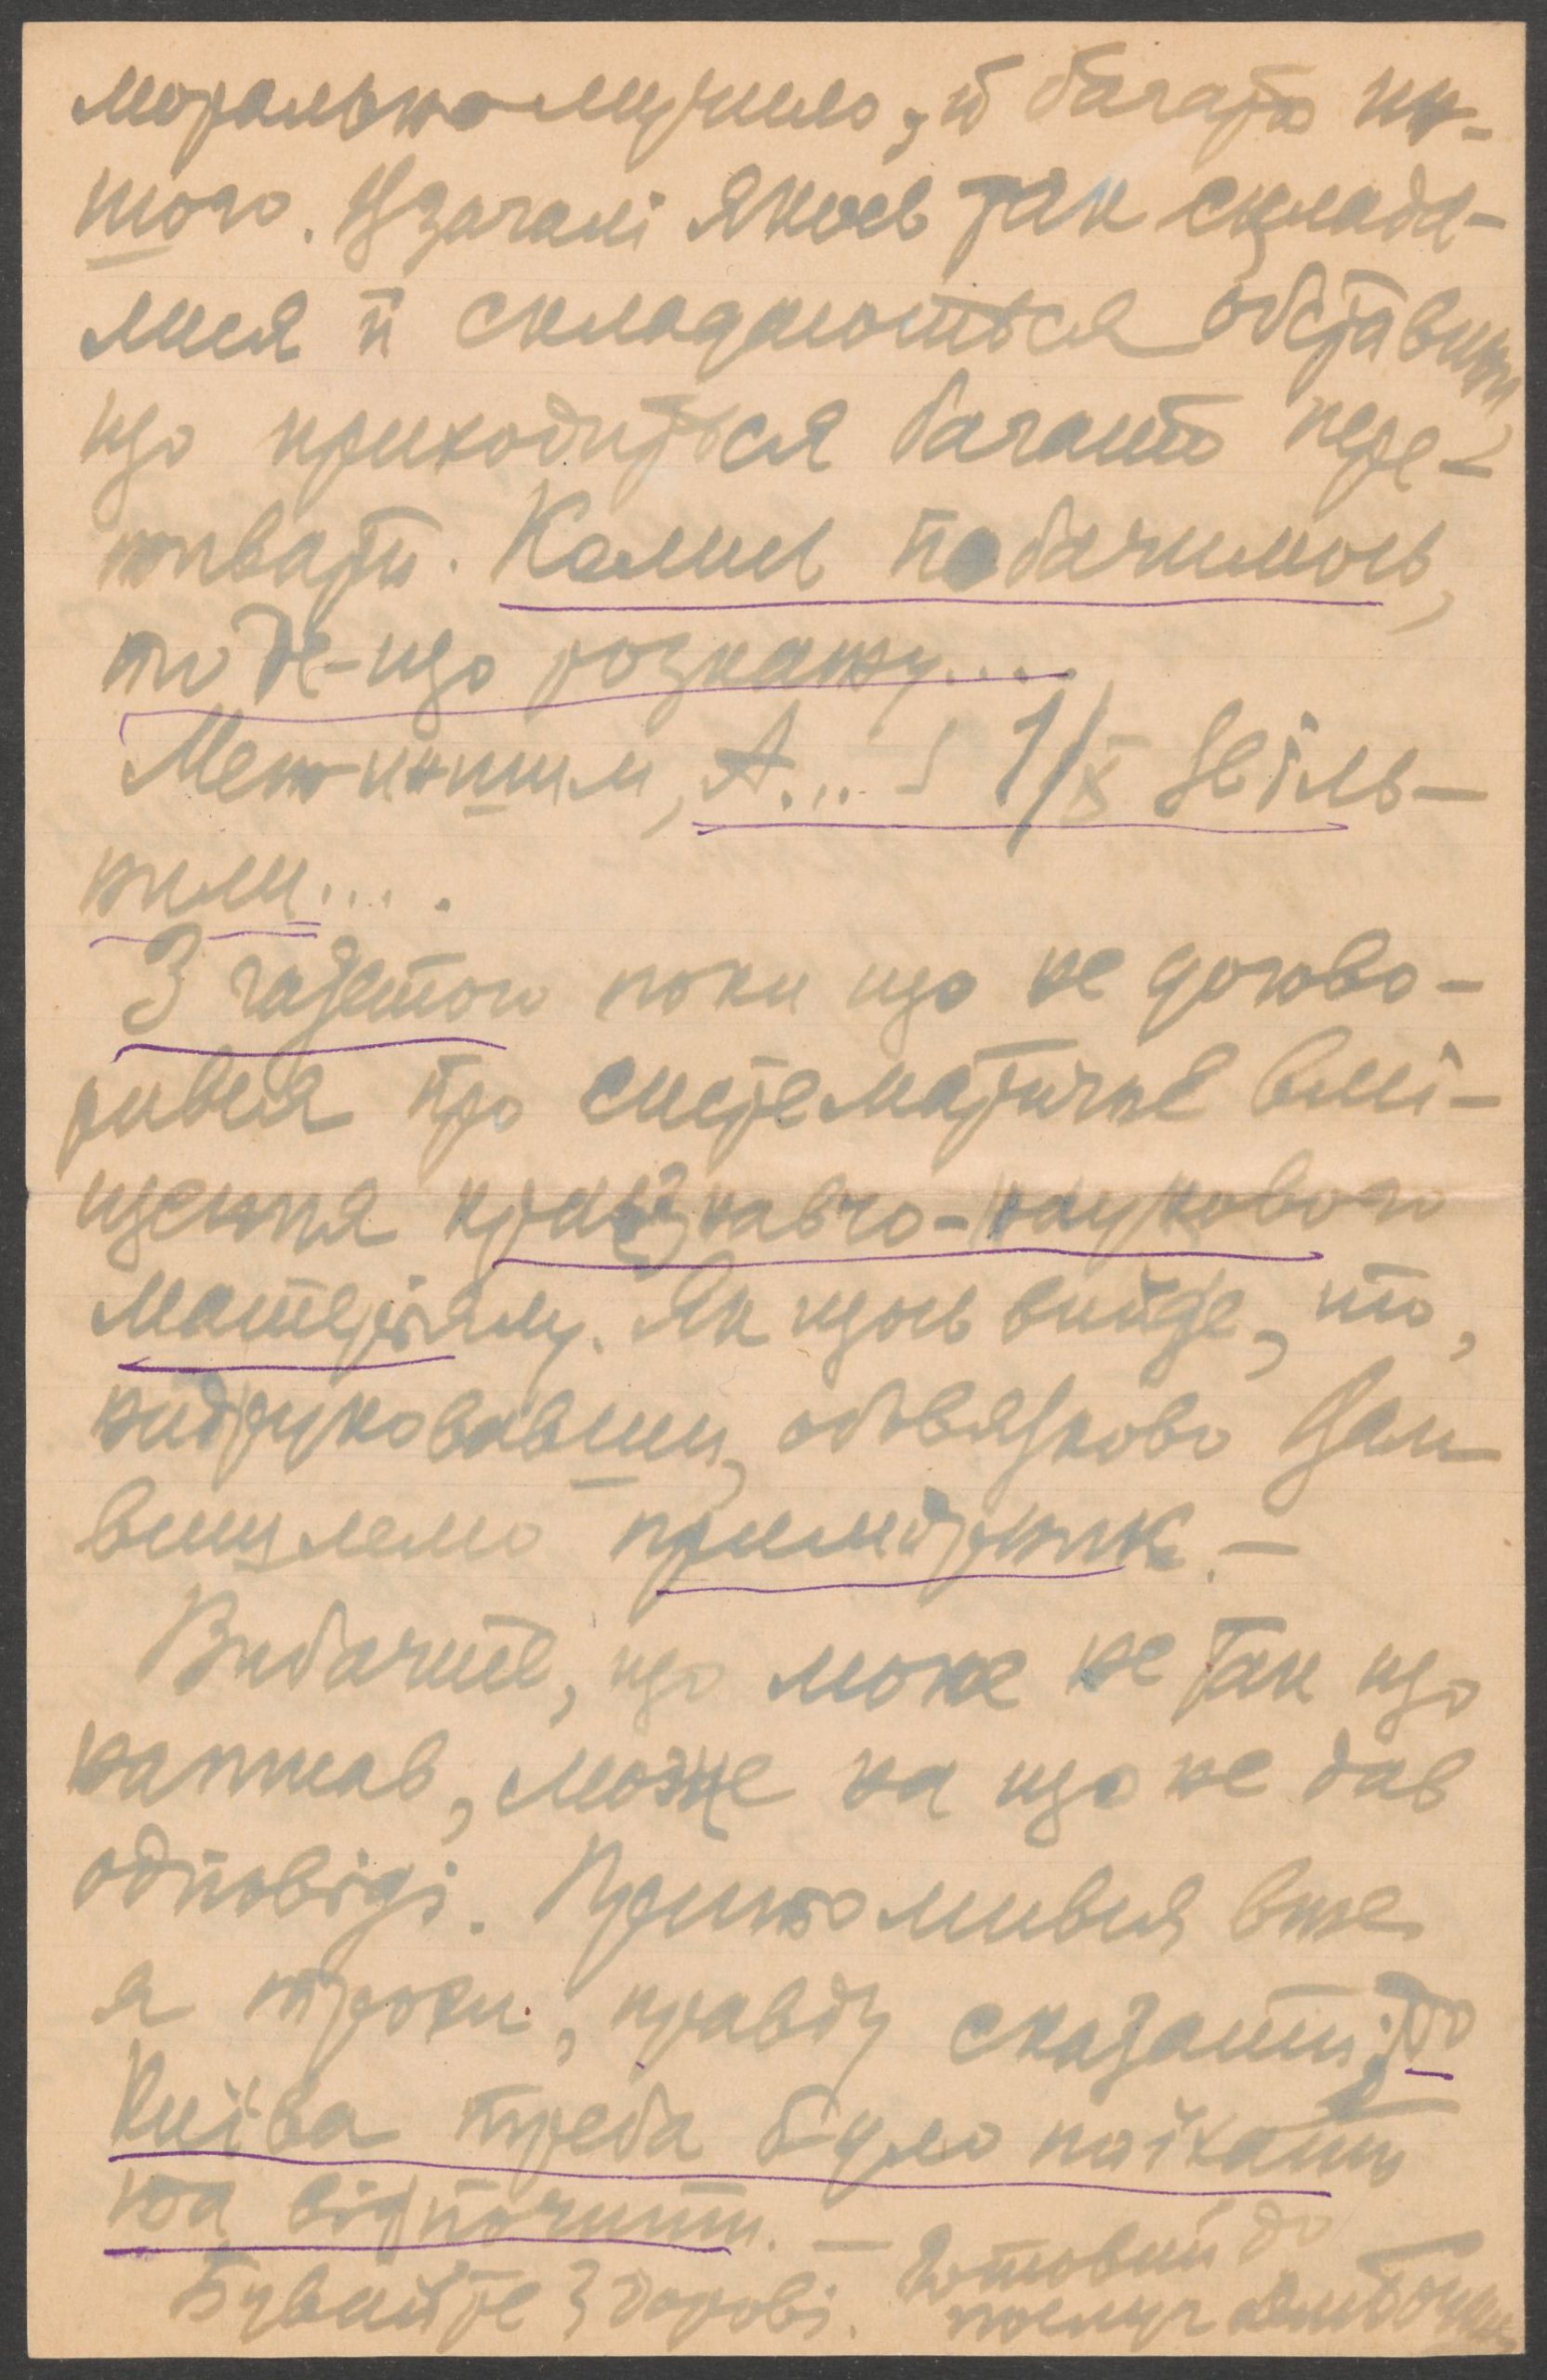 морально мучило, й багато ин-
шого. Взагалі якось так склада-
лися й складаються обставини,
що приходиться багато пере-
живати. Колись побачимось,
то де-що розкажу....
Меж иншим, А... з 1/X звіль-
нили....
З газетою поки що не догово-
рився про систематичне вмі-
щення краєзнавчо-наукового
матеріялу. Як щось вийде, то,
надрукувавши, обовязково Вам
вишлемо примірник. —
Вибачте, що може не так що
написав, може на що не дав
одповіді. Притомився вже
я трохи, правду сказати; до
Київа треба було поїхати
та відпочити. — Готовий до
Бувайте здорові. послуг